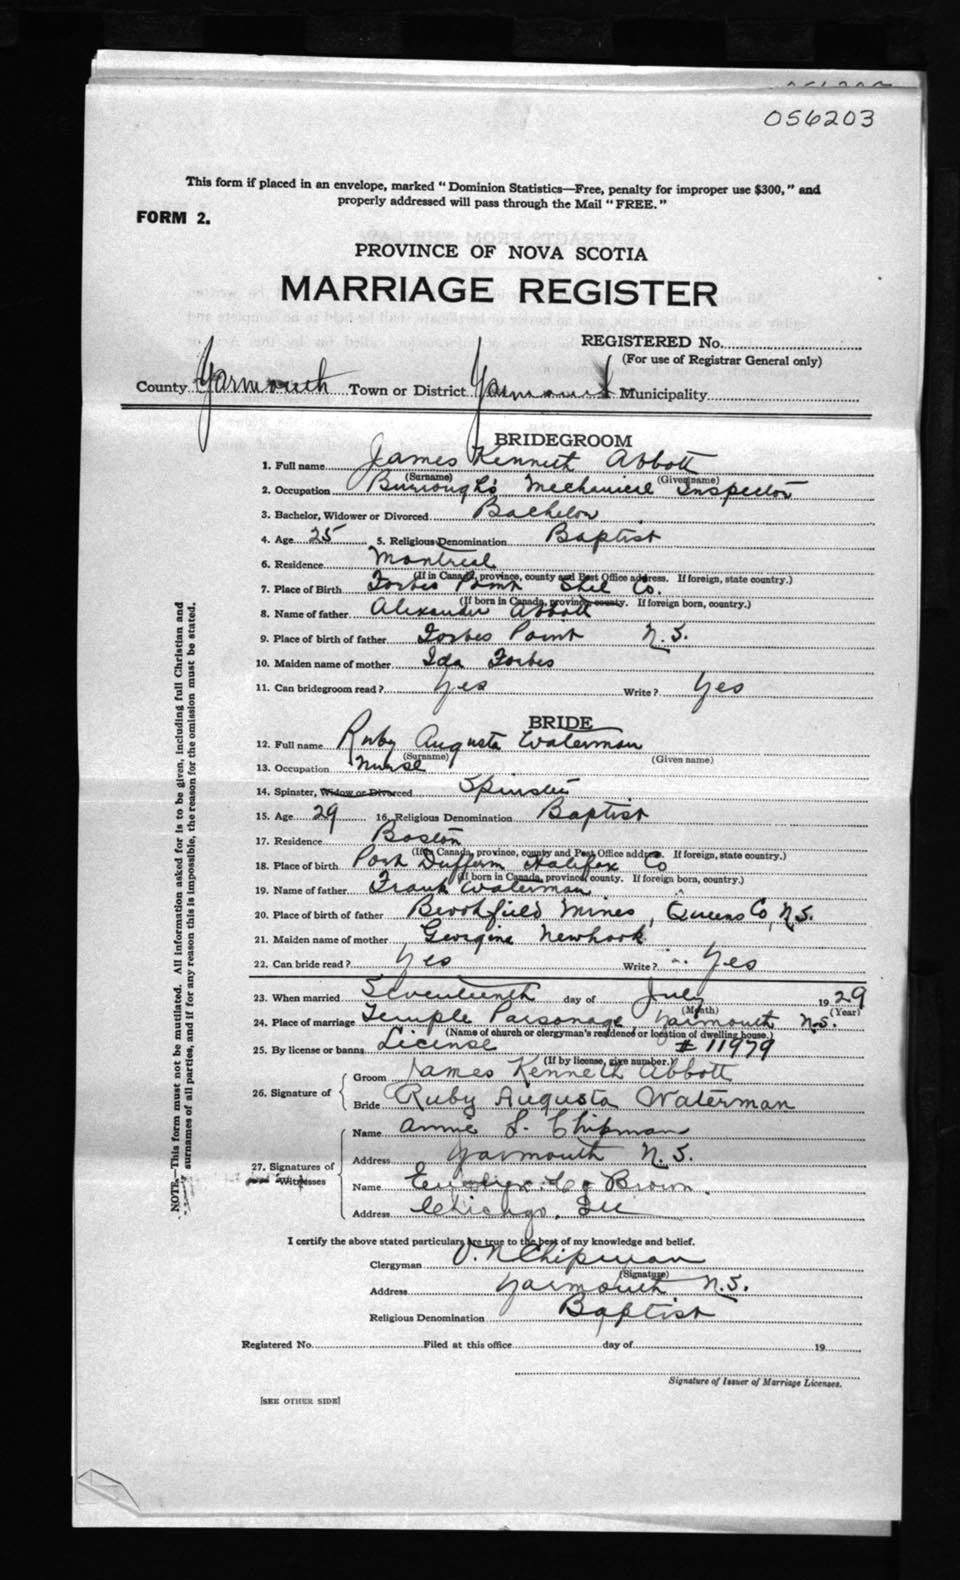 056203
This form if placed in an envelope, marked "Dominion Statistics—Free, penalty for improper use $300," and
properly addressed will pass through the Mail "FREE."
FORM 2.
PROVINCE OF NOVA SCOTIA
MARRIAGE REGISTER
REGISTERED No.
(For use of Registrar General only)
County Yarmouth Town or District Yarmouth Municipality
BRIDEGROOM
1. Full name James Kenneth Abbott
(Surname) (Given name)
2. Occupation Burroughs Mechanical Inspector
3. Bachelor, Widower or Divorced Bachelor
4. Age 25 5. Religious Denomination Baptist
6. Residence Montreal
(If in Canada, province, county and Post Office address. If foreign, state country.)
7. Place of Birth Forbes Point Shel Co.
(If born in Canada, province, county. If foreign born, country.)
8. Name of father Alexander Abbott
9. Place of birth of father Forbes Point N.S.
10. Maiden name of mother Ida Forbes
11. Can bridegroom read? Yes Write? Yes
BRIDE
12. Full name Ruby Augusta Waterman
(Surname) (Given name)
13. Occupation Nurse
14. Spinster, Widow or Divorced Spinster
15. Age 29 16. Religious Denomination Baptist
17. Residence Boston
(If in Canada, province, county and Post Office address. If foreign, state country.)
18. Place of birth Port Dufferin Halifax Co
(If born in Canada, province, county. If foreign born, country.)
19. Name of father Frank Waterman
20. Place of birth of father Brookfield Mines, Queens Co, N.S.
21. Maiden name of mother Georgina Newhook
22. Can bride read? Yes Write? " Yes
23. When married Seventeenth day of July 1929
(Month) (Year)
24. Place of marriage Temple Parsonage Yarmouth N.S.
(Name of church or clergyman's residence or location of dwelling house.)
25. By license or banns License # 11979
(If by license, give number.)
26. Signature of
Groom James Kenneth Abbott
Bride Ruby Augusta Waterman
27. Signatures of Witnesses
Name Annie L. Chipman
Address Yarmouth N.S.
Name Brown.
Address Chicago, Ill
I certify the above stated particulars are true to the best of my knowledge and belief.
Clergyman O. N Chipman
(Signature)
Address Yarmouth N.S.
Religious Denomination Baptist
Registered No. Filed at this office day of 19
Signature of Issuer of Marriage Licenses.
[SEE OTHER SIDE]
NOTE.—This form must not be mutilated. All information asked for is to be given, including full Christian and
surnames of all parties, and if for any reason this is impossible, the reason for the omission must be stated.